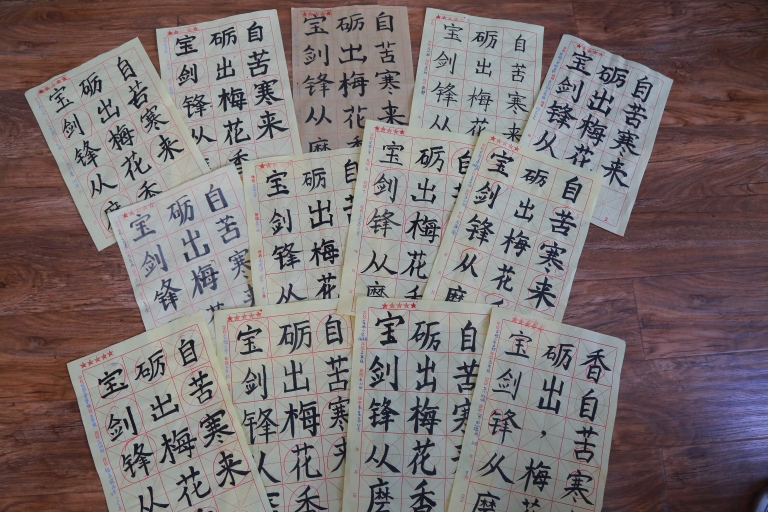 宝剑锋从磨
砺出梅花香
自苦寒来
宝剑锋从
砺出梅花香
自苦寒来
宝剑锋从磨
砺出梅花
自苦寒来香
宝剑锋从
砺出梅花
自苦寒来
宝剑锋从
砺出梅花
自苦寒来
宝剑锋
砺出梅
自苦寒
宝剑锋从
砺出梅花
自苦寒来
宝剑锋从磨
砺出梅花
自苦
宝剑锋从磨
砺出梅花香
自苦寒来
宝剑锋从
砺出梅花
自苦寒来
宝剑锋从
砺出梅花香
自苦寒来
宝剑锋从磨
砺出梅花香
自苦寒来
宝剑锋从磨
砺出，梅花
香自苦寒